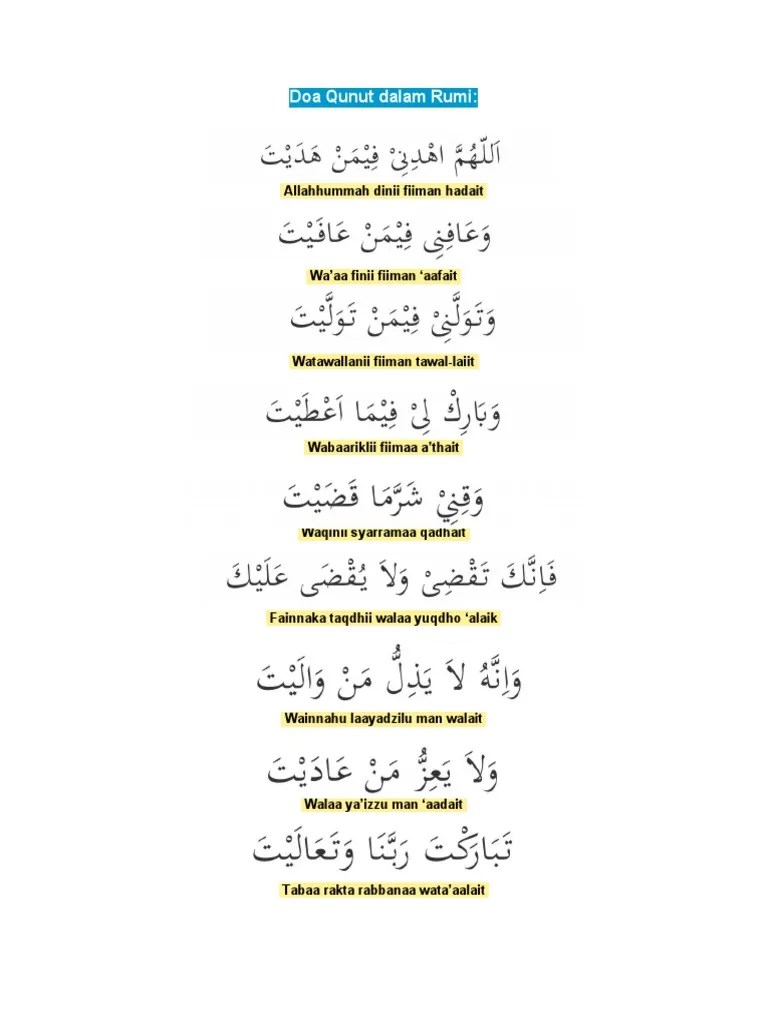 Doa Qunut dalam Rumi:
اَللّٰهُمَّ اهْدِنِيْ فِيْمَنْ هَدَيْتَ
Allahhummah dinii fiiman hadait
وَعَافِنِى فِيْمَنْ عَافَيْتَ
Wa’aa finii fiiman ‘aafait
وَتَوَلَّنِىْ فِيْمَنْ تَوَلَّيْتَ
Watawallanii fiiman tawal-laiit
وَبَارِكْ لِىْ فِيْمَا اَعْطَيْتَ
Wabaariklii fiimaa a’thait
وَقِنِيْ شَرَّمَا قَضَيْتَ
Waqinii syarramaa qadhait
فَاِنَّكَ تَقْضِىْ وَلاَ يُقْضَى عَلَيْكَ
Fainnaka taqdhii walaa yuqdho ‘alaik
وَاِنَّهُ لاَ يَذِلُّ مَنْ وَالَيْتَ
Wainnahu laayadzilu man walait
وَلاَ يَعِزُّ مَنْ عَادَيْتَ
Walaa ya’izzu man ‘aadait
تَبَارَكْتَ رَبَّنَا وَتَعَالَيْتَ
Tabaa rakta rabbanaa wata’aalait